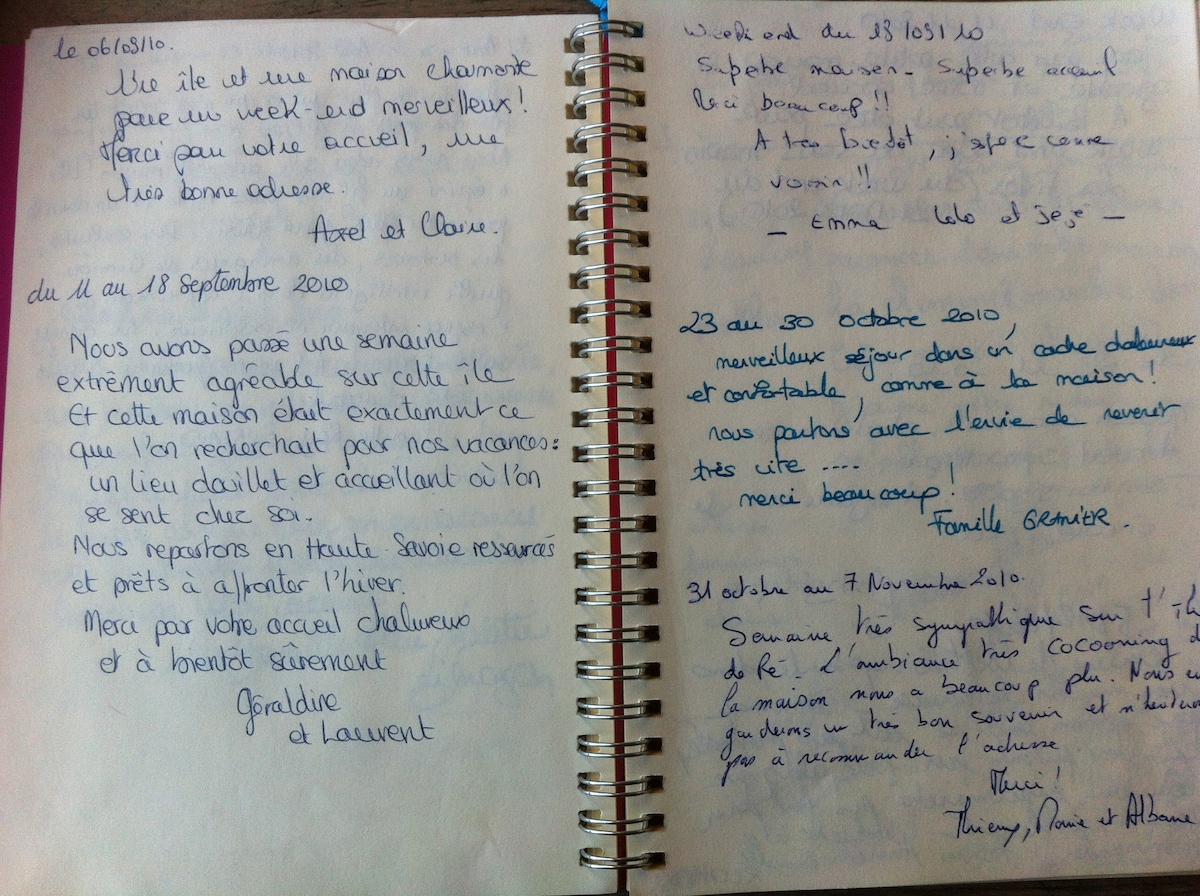 le 06/09/10.
Une île et une maison charmante
pour un week-end merveilleux !
Merci pour votre accueil, une
très bonne adresse.
Axel et Claire.
du 11 au 18 Septembre 2010
Nous avons passé une semaine
extrêment agréable sur cette île
Et cette maison était exactement ce
que l'on recherchait pour nos vacances :
un lieu douillet et accueillant où l'on
se sent chez soi.
Nous repartons en Haute-Savoie ressourcés
et prêts à affronter l'hiver.
Merci par votre accueil chaleureux
et à bientôt sûrement
Géraldine
et Laurent
Week end du 18/09/10
Superbe maison - Superbe accueil
Merci beaucoup !!
A tres bientot,
voisin !!
- Emma lolo et Jeje -
23 au 30 octobre 2010,
merveilleux séjour dans un cadre chaleureux
et confortable, comme à la maison !
nous partons avec l'envie de revenir
très vite ....
merci beaucoup !
Famille GRANIER.
31 octobre au 7 Novembre 2010.
Semaine très sympathique sur l'île
de Ré. L'ambiance très cocooning d
la maison nous a beaucoup plu. Nous en
garderons un très bon souvenir et n'hésiterons
pas à recommander l'adresse
Merci !
Thierry, Marie et Albane